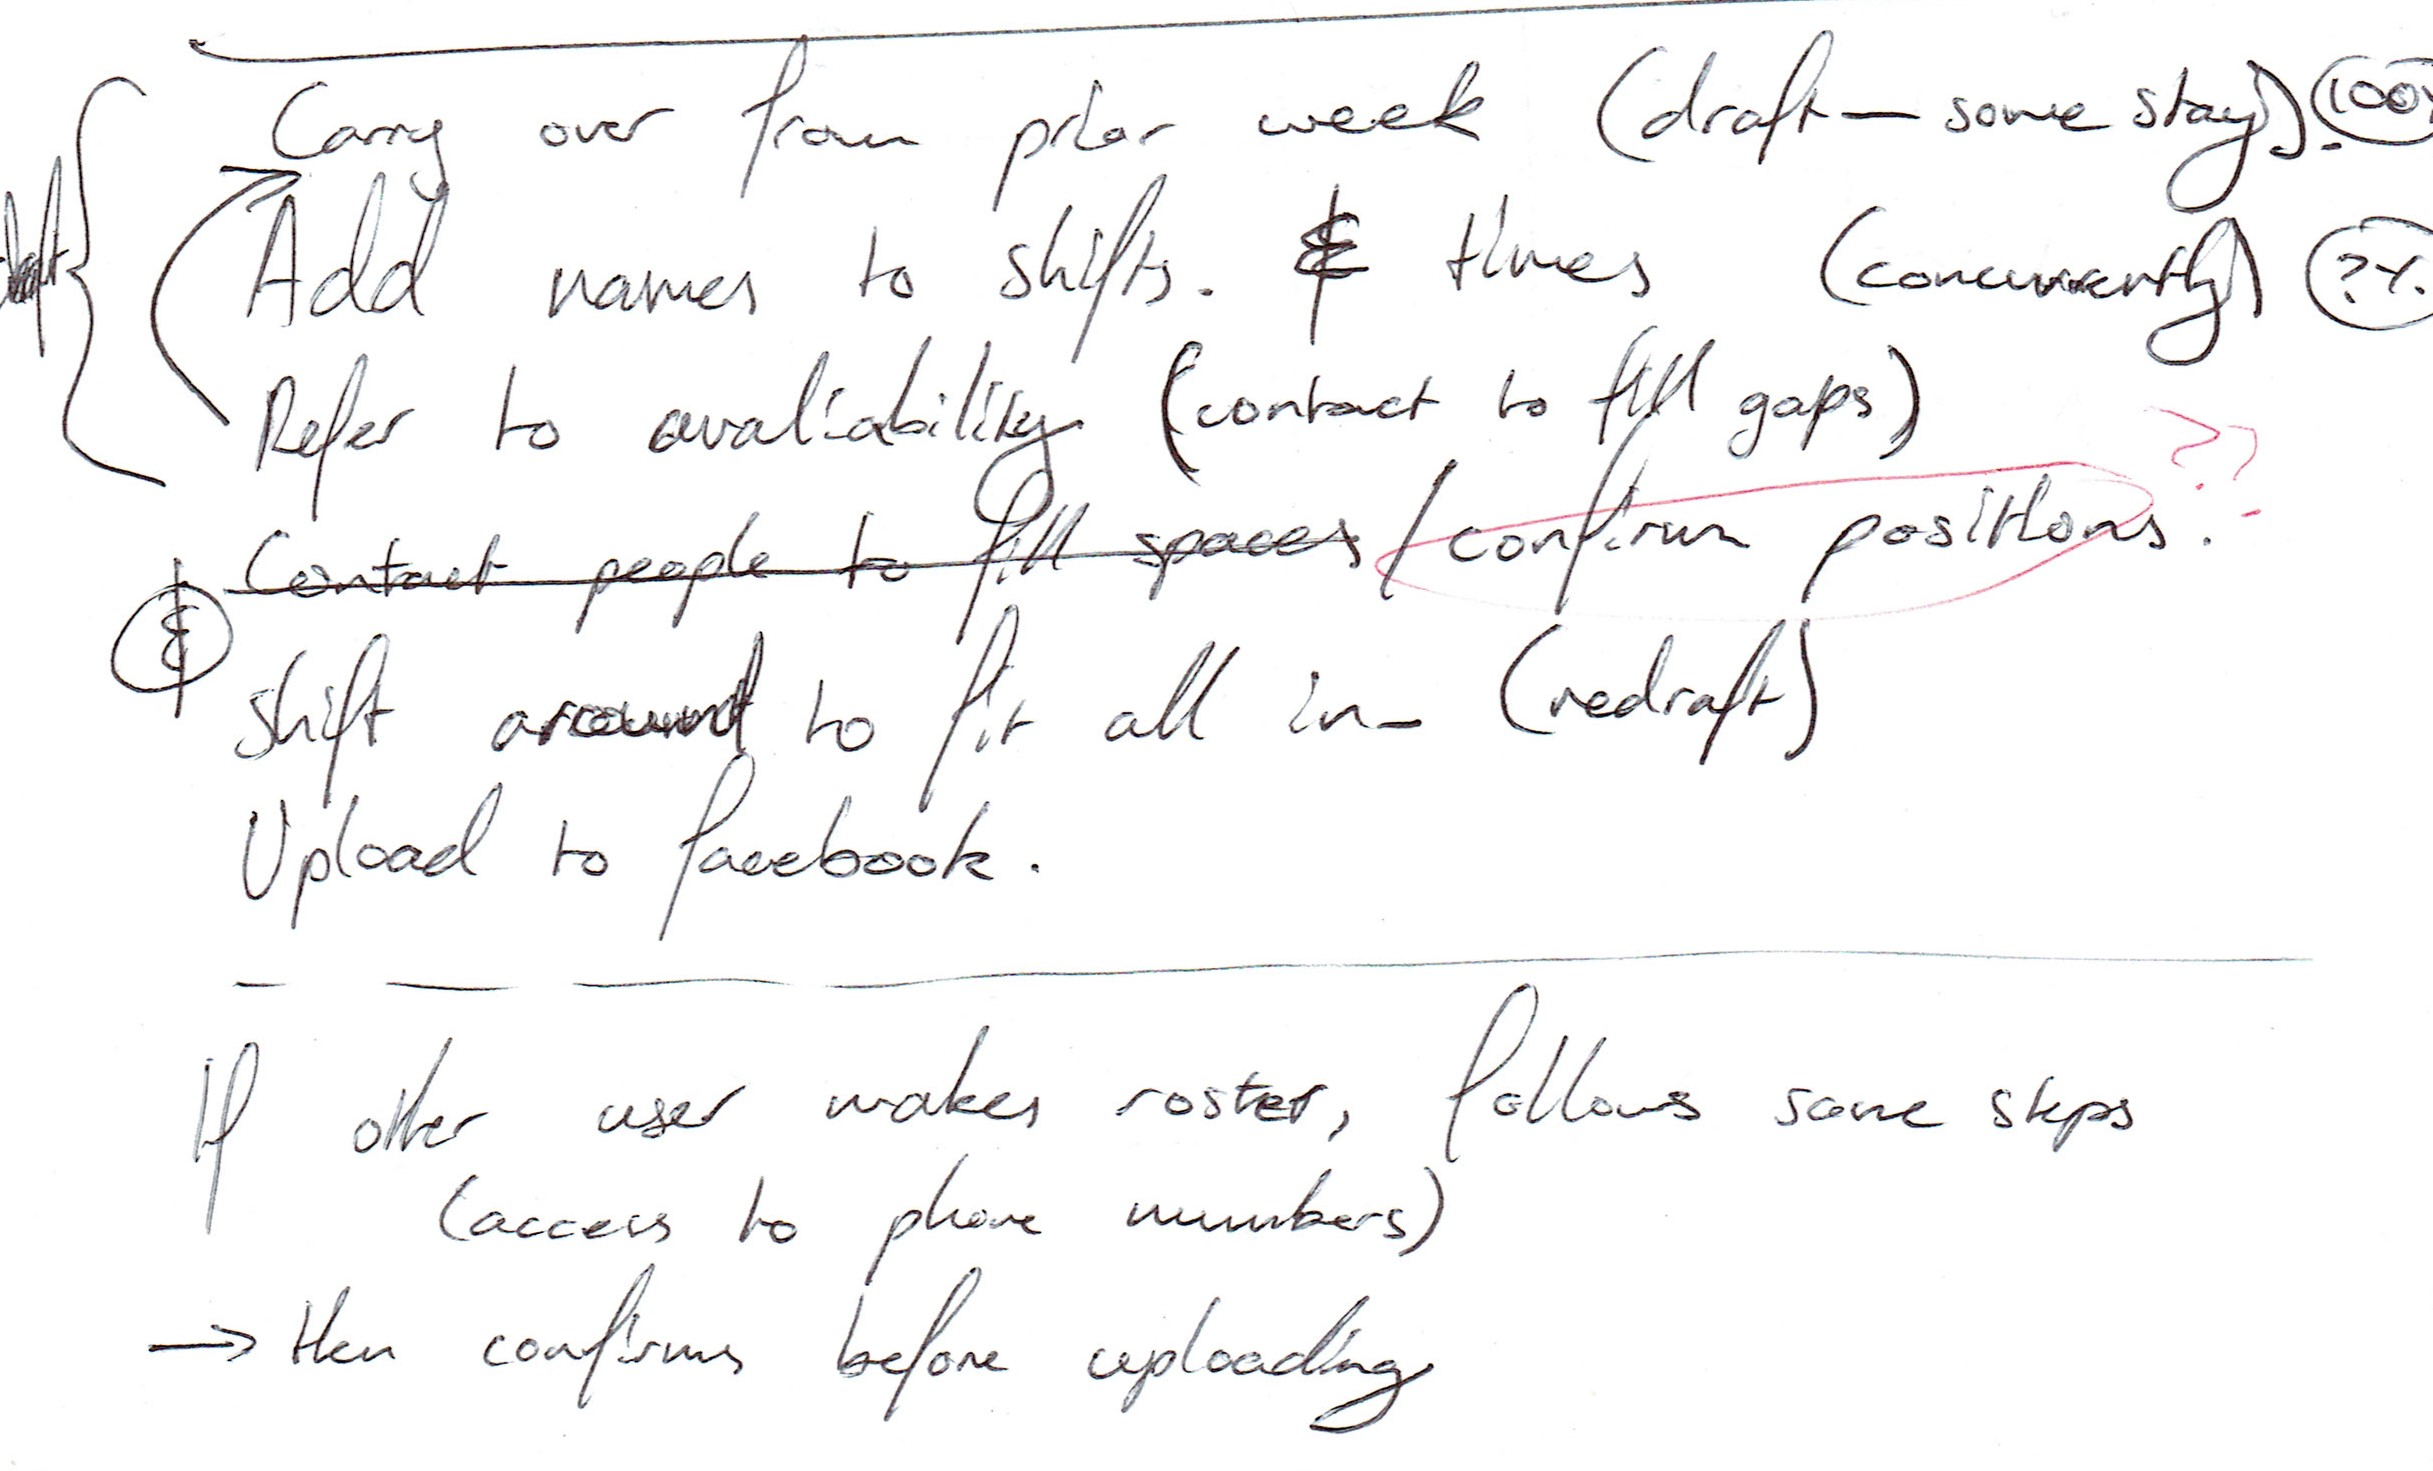 Carry over from prior week (draft — some stay). 100%
draft
Add names to shifts. & times (concurrently) ?%
Refer to avaliability (contact to fill gaps)
??
Contact people to fill spaces / confirm positions.
&
shift around to fit all in - (redraft)
Upload to facebook.
If other user makes roster, follows same steps
(access to phone numbers)
→ then confirms before uploading